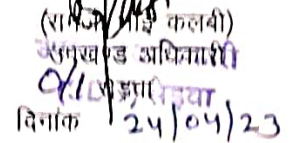 (रामजी भाई कलबी)
उपखण्ड अधिकारी
दिनांक 24/04/23